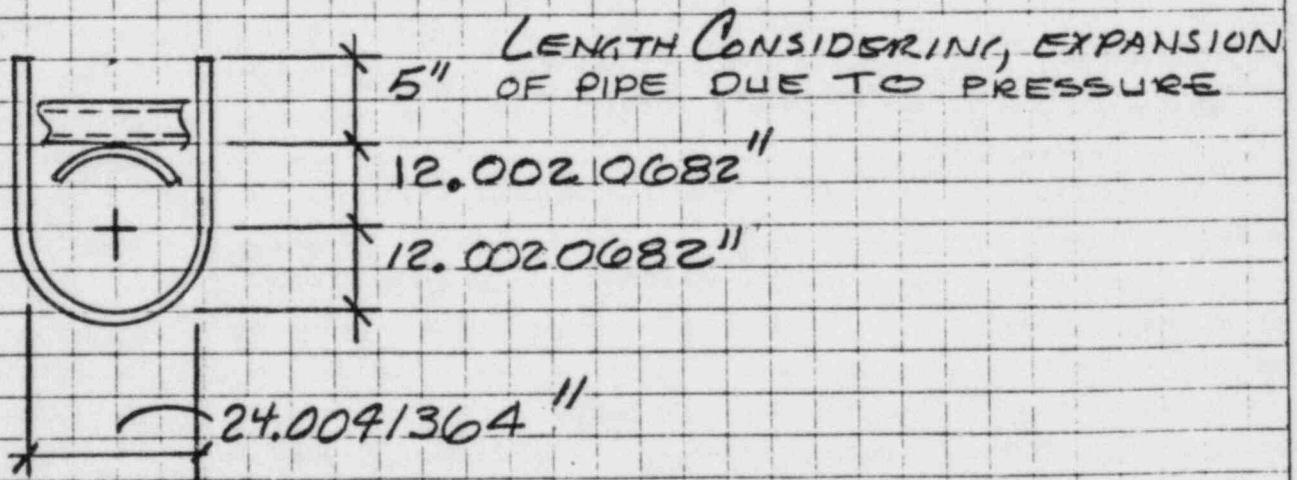 LENGTH CONSIDERING, EXPANSION
5" OF PIPE DUE TO PRESSURE
12.00210682"
12.0020682"
24.0041364"